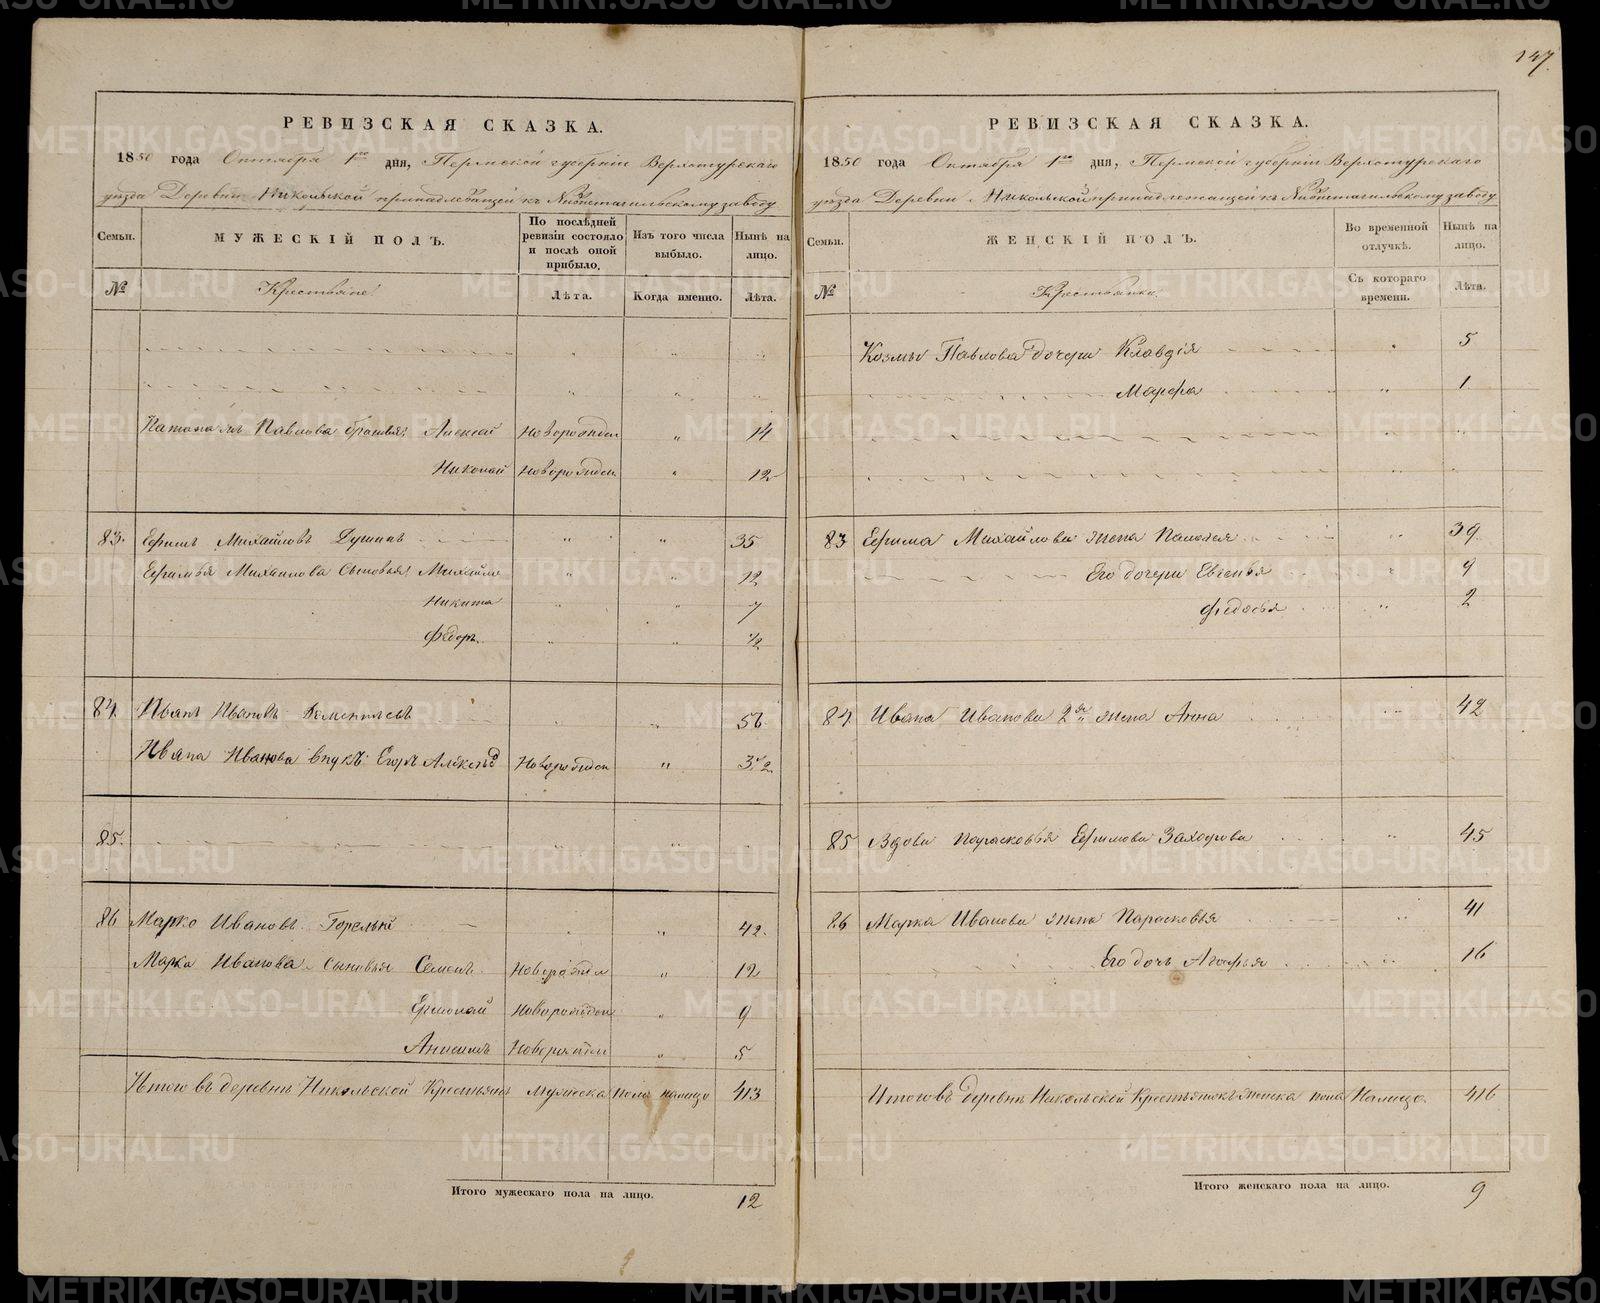 147.
РЕВИЗСКАЯ СКАЗКА.
1850 года Октября 1го дня, Пермской губернии Верхотурскаго
уезда Деревни Никольской принадлежащей къ Нижнетагильскому заводу
Семьи. МУЖЕСКІЙ ПОЛЪ. По послѣдней ревизіи состояло и послѣ оной прибыло. Изъ того числа выбыло. Нынѣ на лицо.
№ Крестьяне Лѣта. Когда именно. Лѣта.
Павлова братья Алексѣй Новорожден " 14
Николай Новорожден " 12
83. Ефимъ Михайловъ " " 35
Ефимья Михайлова Сыновья Михайло " " 12
Никита " " 7
Федоръ " " 1/2
84. Иванъ Ивановъ " 56
Ивана Иванова внукъ Егоръ Новорожден " 3 1/2
85. " "
86 Марко Ивановъ Горелый " 42.
Марка Иванова Сыновья Семенъ Новорожден " 12
Ермолай Новорожден " 9
Анисимъ Новорожден " 5
Итого въ деревнѣ Никольской Крестьянъ мужеска пола налицо 413
Итого мужескаго пола на лицо. 12
РЕВИЗСКАЯ СКАЗКА.
1850 года Октября 1го дня, Пермской губерніи Верхотурскаго
уезда Деревни Никольской принадлежащей къ Нижнетагильскому заводу
Семьи. ЖЕНСКІЙ ПОЛЪ. Во временной отлучкѣ. Нынѣ на лицо.
№ Крестьянки Съ котораго времени. Лѣта.
Козмы Павлова дочери Клавдія " 5
Марфа " 1
83 Ефима Михайлова жена Палагея " 39
Его дочери Евгенья " 9
Федосья " 2
84 Ивана Иванова 2я жена Анна " 42
85 Вдова Парасковья Ефимова Захарова " 45
86 Марка Иванова жена Парасковья " 41
Его дочь Агафья " 16
Итого въ деревнѣ Никольской Крестьянокъ женска пола Налицо 416
Итого женскаго пола на лицо. 9
METRIKI.GASO-URAL.RU